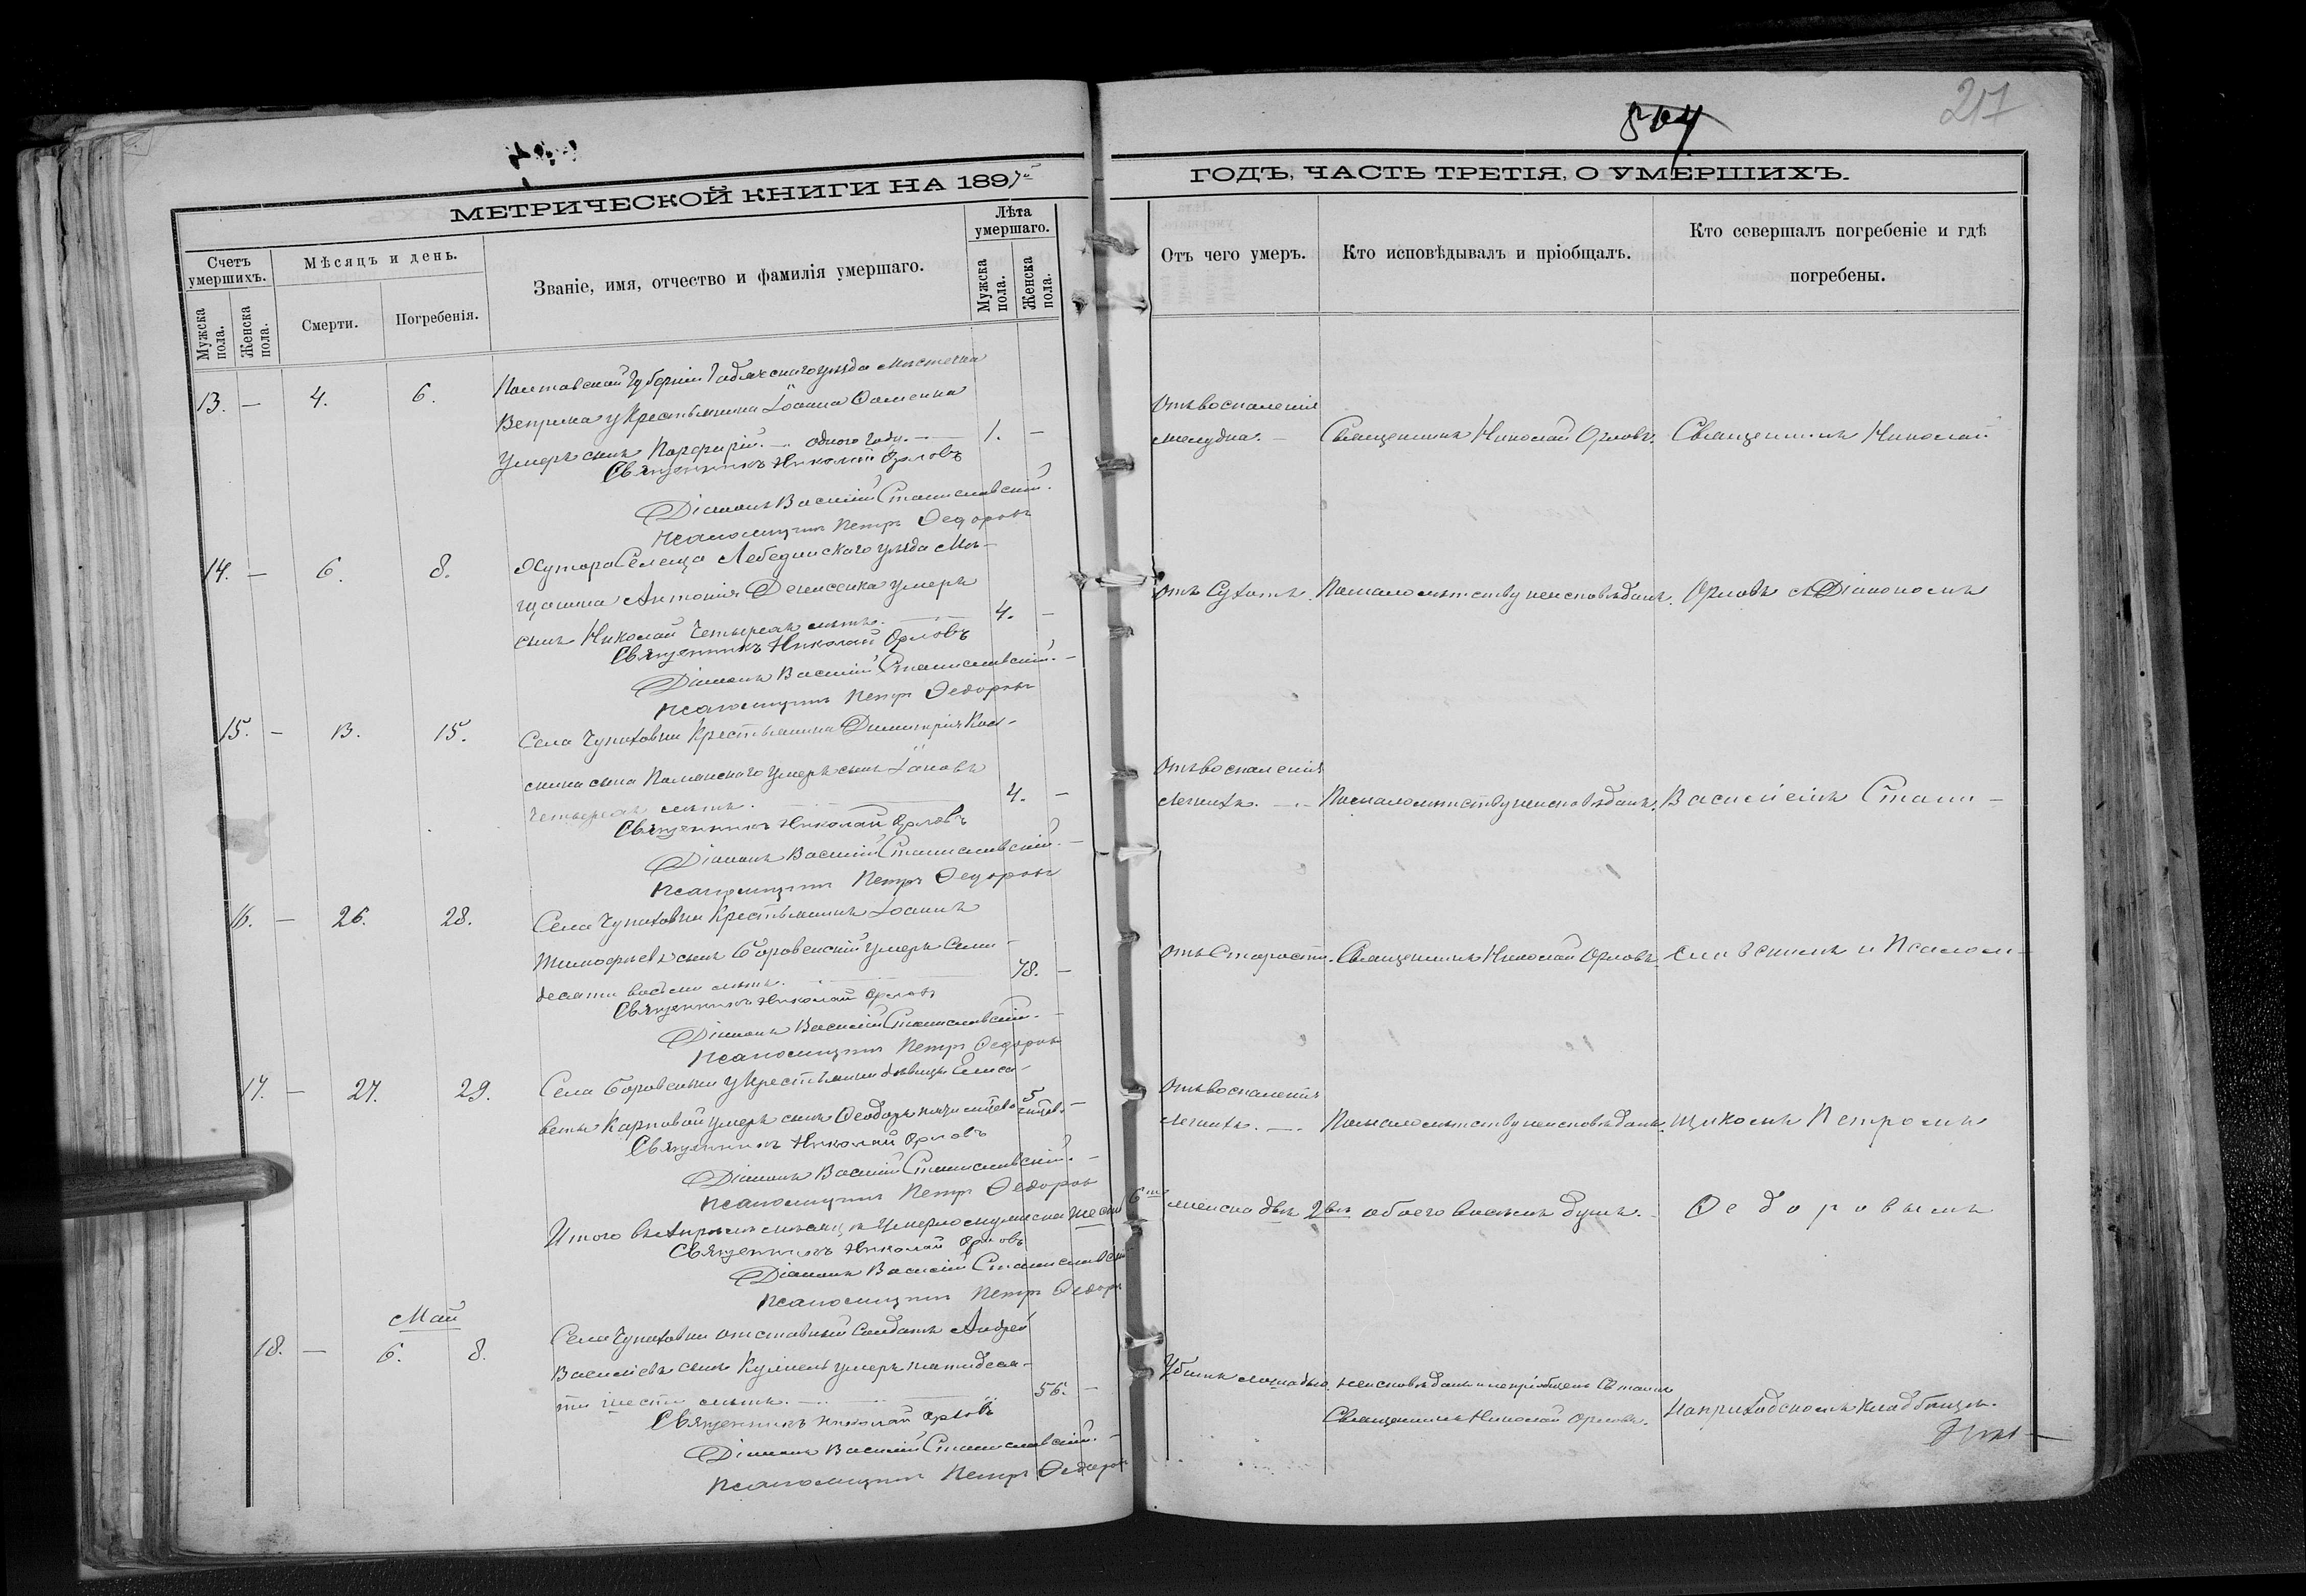 504
217
МЕТРИЧЕСКОЙ КНИГИ НА 1897й
ГОДЪ, ЧАСТЬ ТРЕТІЯ, О УМЕРШИХЪ.
Счетъ умершихъ.
Мужска пола.
Женска пола.
Мѣсяцъ и день.
Смерти.
Погребенія.
Званіе, имя, отчество и фамилія умершаго.
Лѣта умершаго.
Мужска пола.
Женска пола.
Отъ чего умеръ.
Кто исповѣдывалъ и пріобщалъ.
Кто совершалъ погребеніе и гдѣ
погребены.
13. — 4. 6. Полтавской Губерніи Гадячскаго уѣзда мѣстечка
Веприка у Крестьянина Іоанна
умеръ сынъ Порфирій. — одного году. — 1. —
Священникъ Николай Орловъ
Діаконъ Василій Станиславскій.
Псаломщикъ Петръ Федоровъ
Отъ воспаленія
желудка. — Священникъ Николай Орловъ. Священникъ Николай
14. — 6. 8. Хутора Селища Лебединскаго уѣзда Мѣ-
щанина Антонія Денисенка умеръ
сынъ Николай четырехъ лѣтъ. — 4. —
Священникъ Николай Орловъ
Діаконъ Василій Станиславскій. —
Псаломщикъ Петръ Федоровъ
Отъ Сухотъ. По малолѣтству неисповѣданъ. Орловъ съ Діакономъ
15. — 13. 15. Села Чупаховки Крестьянина Димитрія Кос-
мина сына умеръ сынъ Іаковъ
четырехъ лѣтъ. — 4. —
Священникъ Николай Орловъ
Діаконъ Василій Станиславскій. —
Псаломщикъ Петръ Федоровъ
Отъ воспаленія
легкихъ. — По малолѣтству неисповѣданъ. Василіемъ Стани-
16. — 26. 28. Села Чупаховки Крестьянинъ Іоаннъ
Тимофіевъ сынъ Боровенскій умеръ семи-
десяти восьми лѣтъ. 78. —
Священникъ Николай Орловъ
Діаконъ Василій Станиславскій. —
Псаломщикъ Петръ Федоровъ
Отъ Старости. Священникъ Николай Орловъ. славскимъ и Псалом-
17. — 27. 29. Села Боровеньки у Крестьянки дѣвицы Елиса-
веты Карповой умеръ сынъ Феодоръ 5 —
Священникъ Николай Орловъ
Діаконъ Василій Станиславскій. —
Псаломщикъ Петръ Федоровъ
Отъ воспаленія
легкихъ. — По малолѣтству неисповѣданъ. щикомъ Петромъ
Итого въ Апрѣлѣ мѣсяцѣ умерло мужска шесть 6ть женска двѣ 2вѣ обоего восемь душъ. — Федоровымъ
Священникъ Николай Орловъ
Діаконъ Василій Станиславскій
Псаломщикъ Петръ Федоровъ
Май
18. — 6. 8. Села Чупаховки отставный Солдатъ Андрей
Василіевъ сынъ умеръ пятидеся-
ти шести лѣтъ. — 56. —
Священникъ Николай Орловъ
Діаконъ Василій Станиславскій. —
Псаломщикъ Петръ Федоровъ
Убитъ лошадью. неисповѣданъ и непріобщенъ Св. таинъ
Священникъ Николай Орловъ. На приходскомъ кладбищѣ.